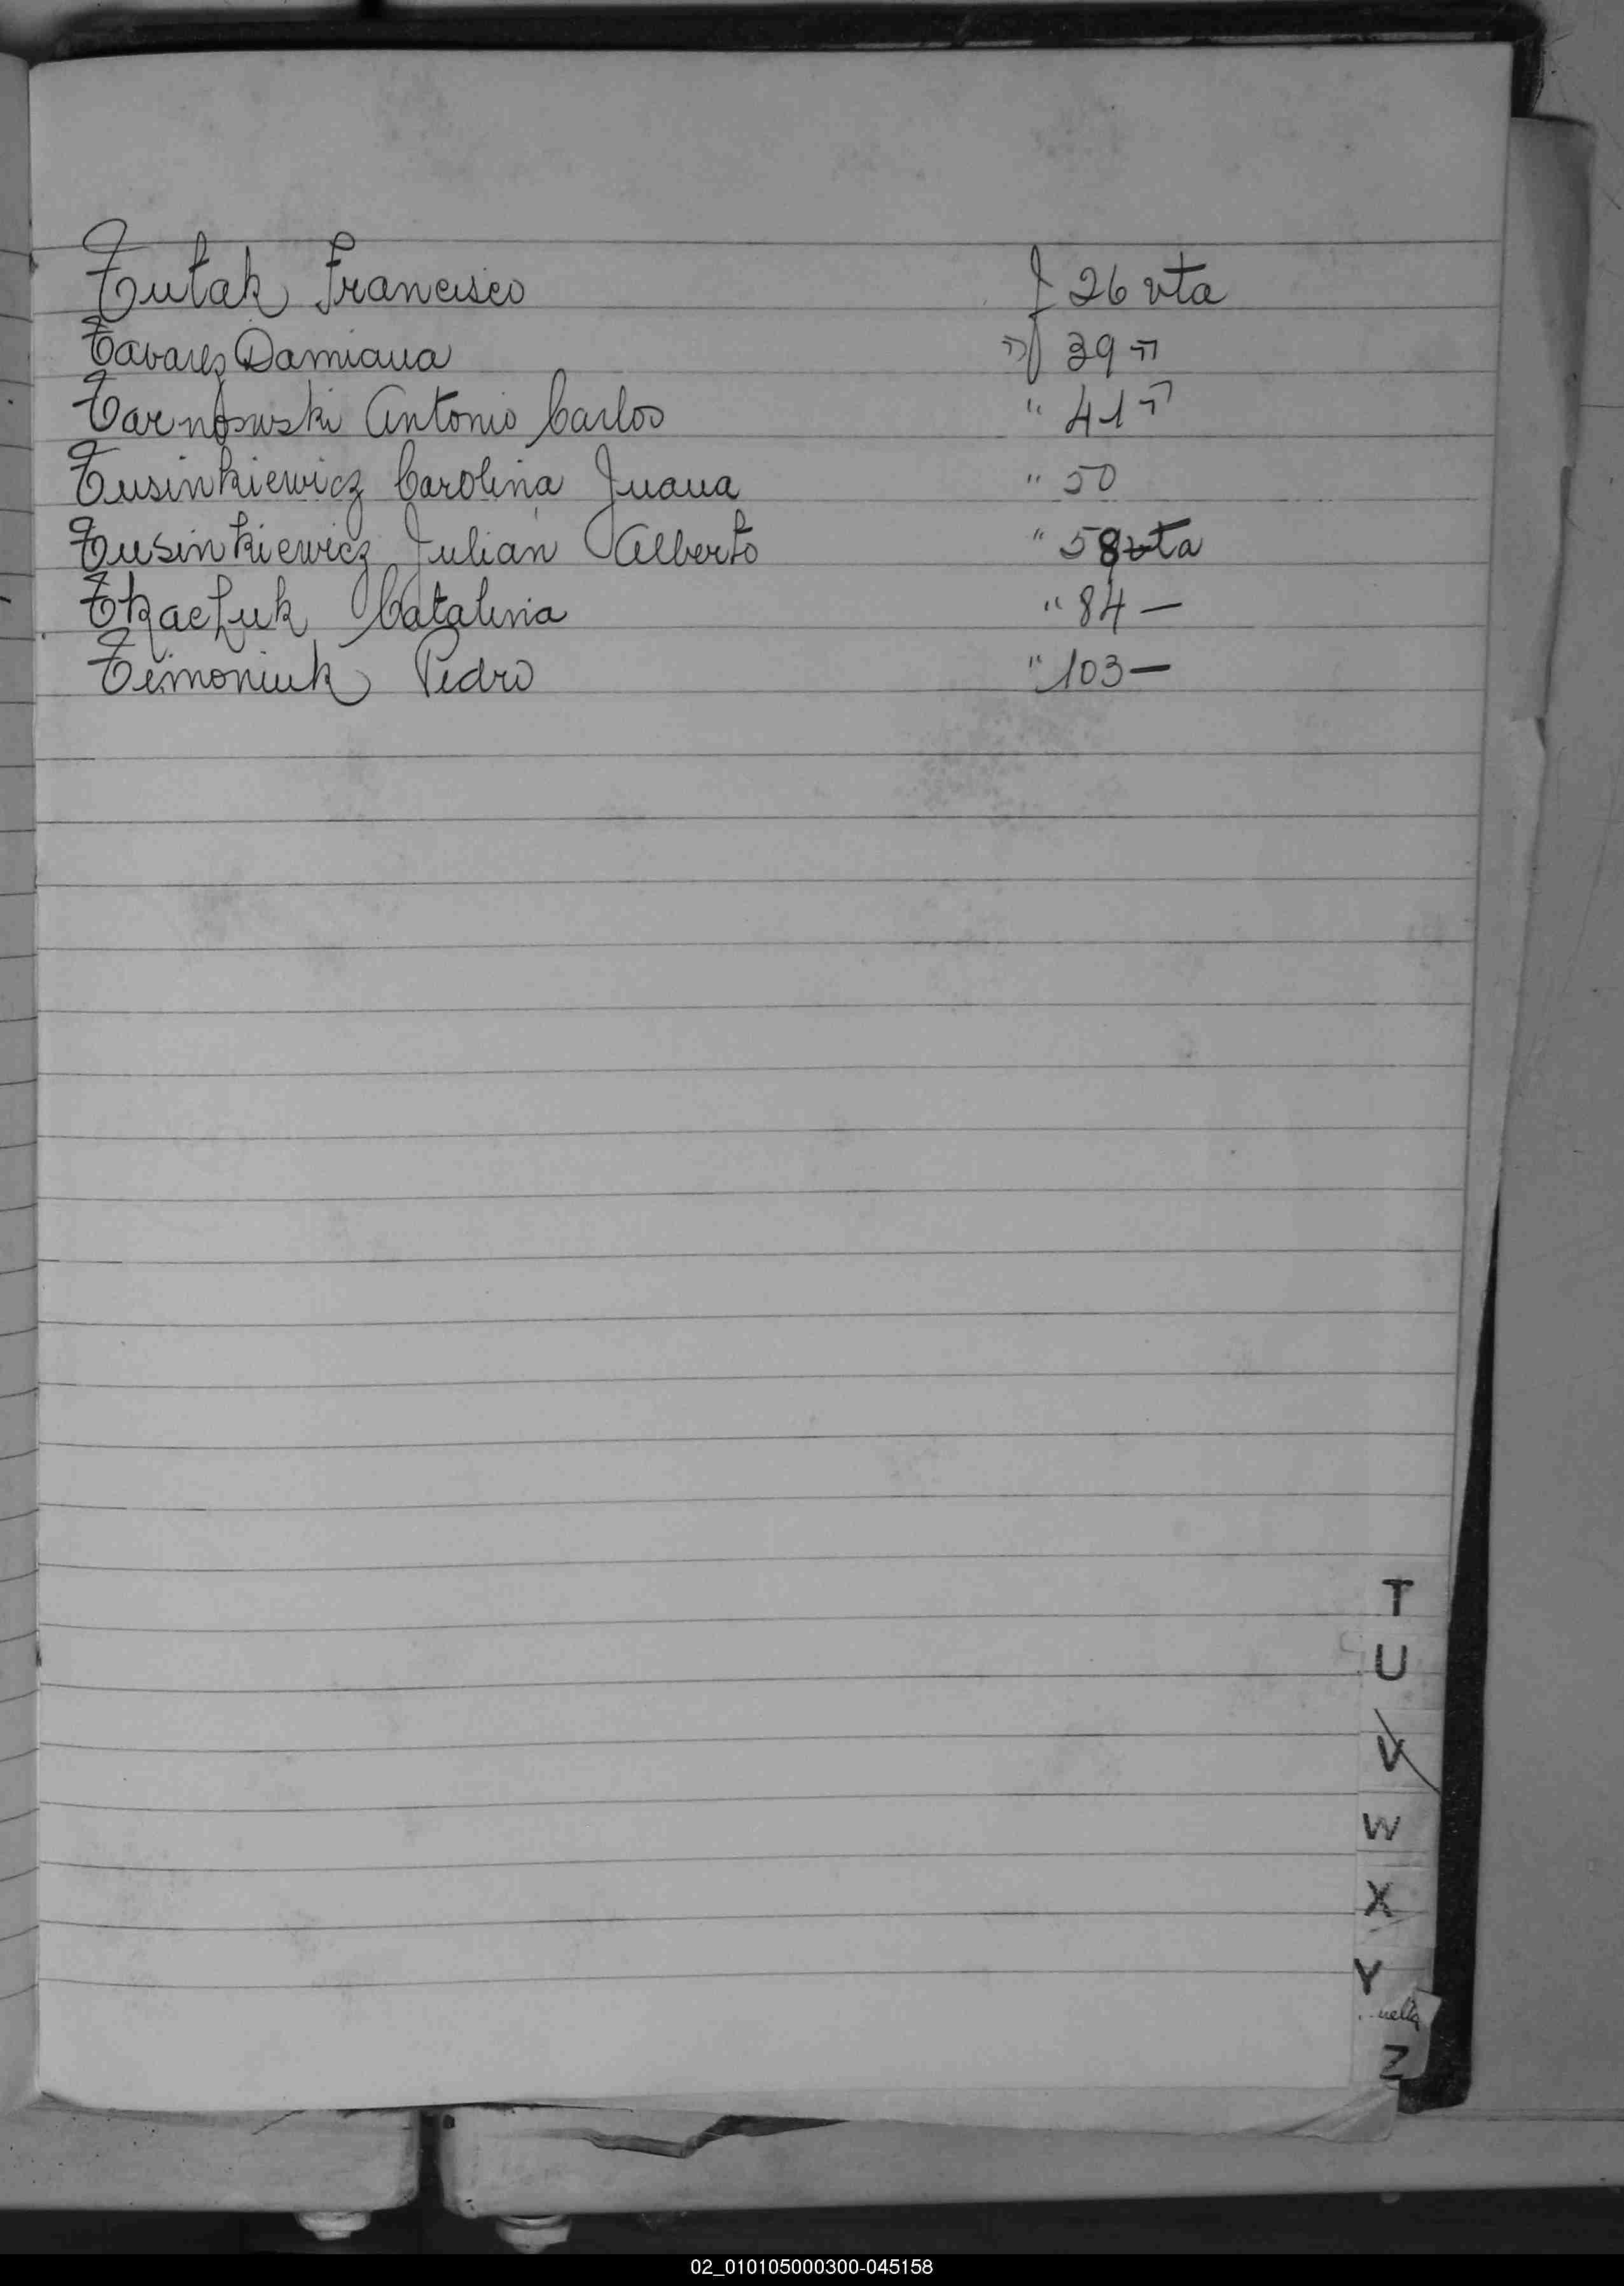 Tutak Francisco f 26 vta
Tavarez Damiana " f 39 "
Tarnowski Antonio Carlos " 41 "
Tusinkiewicz Carolina Juana " 50
Tusinkiewicz Julian Alberto " 58 vta
Tkachuk Catalina " 84 —
Timoniuk Pedro " 103 —
T
U
V
W
X
Y
Z
02_010105000300-045158